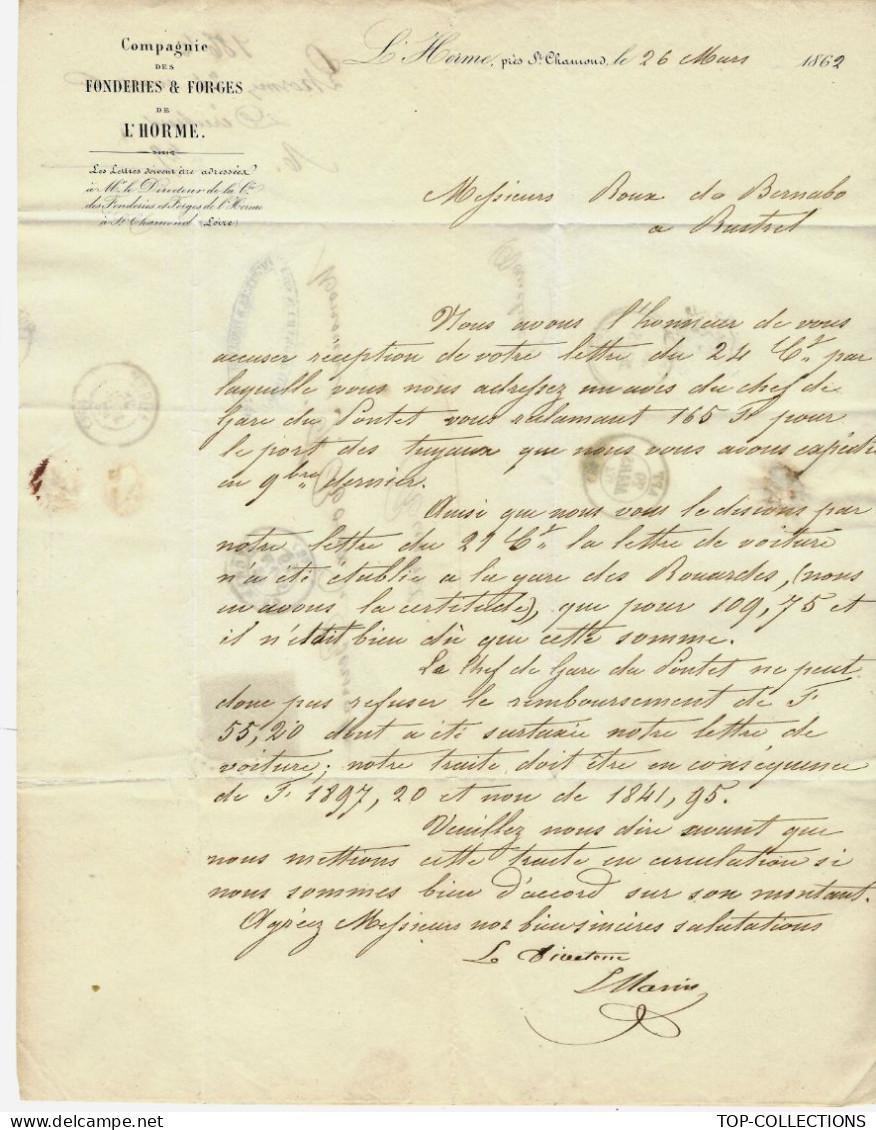 Compagnie
DES
FONDERIES & FORGES
DE
L'HORME.
Les Lettres doivent être adressées
à Mr. le Directeur de la Cie.
des Fonderies et Forges de l'Horme
à St Chamond (Loire)
L'Horme, près St Chamond, le 26 Mars 1862
Messieurs Roux de Bernabo
a Rustrel
Nous avons l'honneur de vous
accuser réception de votre lettre du 24 Ct. par
laquelle vous nous adressez un avis du chef de
Gare du Pontet vous réclamant 165 Fr pour
le port des tuyaux que nous vous avons expédié
en 9bre dernier.
Ainsi que nous vous le disions par
notre lettre du 21 Ct. la lettre de voiture
n'a été établie a la gare des Rouardes, (nous
en avons la certitude), que pour 109,75 et
il n'était bien dû que cette somme.
Le Chef de Gare du Pontet ne peut
donc pas refuser le remboursement de F
55,20 dont a été surtaxée notre lettre de
voiture; notre traite doit être en conséquence
de F. 1897,20 et non de 1841,95.
Veuillez nous dire avant que
nous mettions cette traite en circulation si
nous sommes bien d'accord sur son montant.
Agréez Messieurs nos bien sincères salutations
Le Directeur
TOP-COLLECTIONS